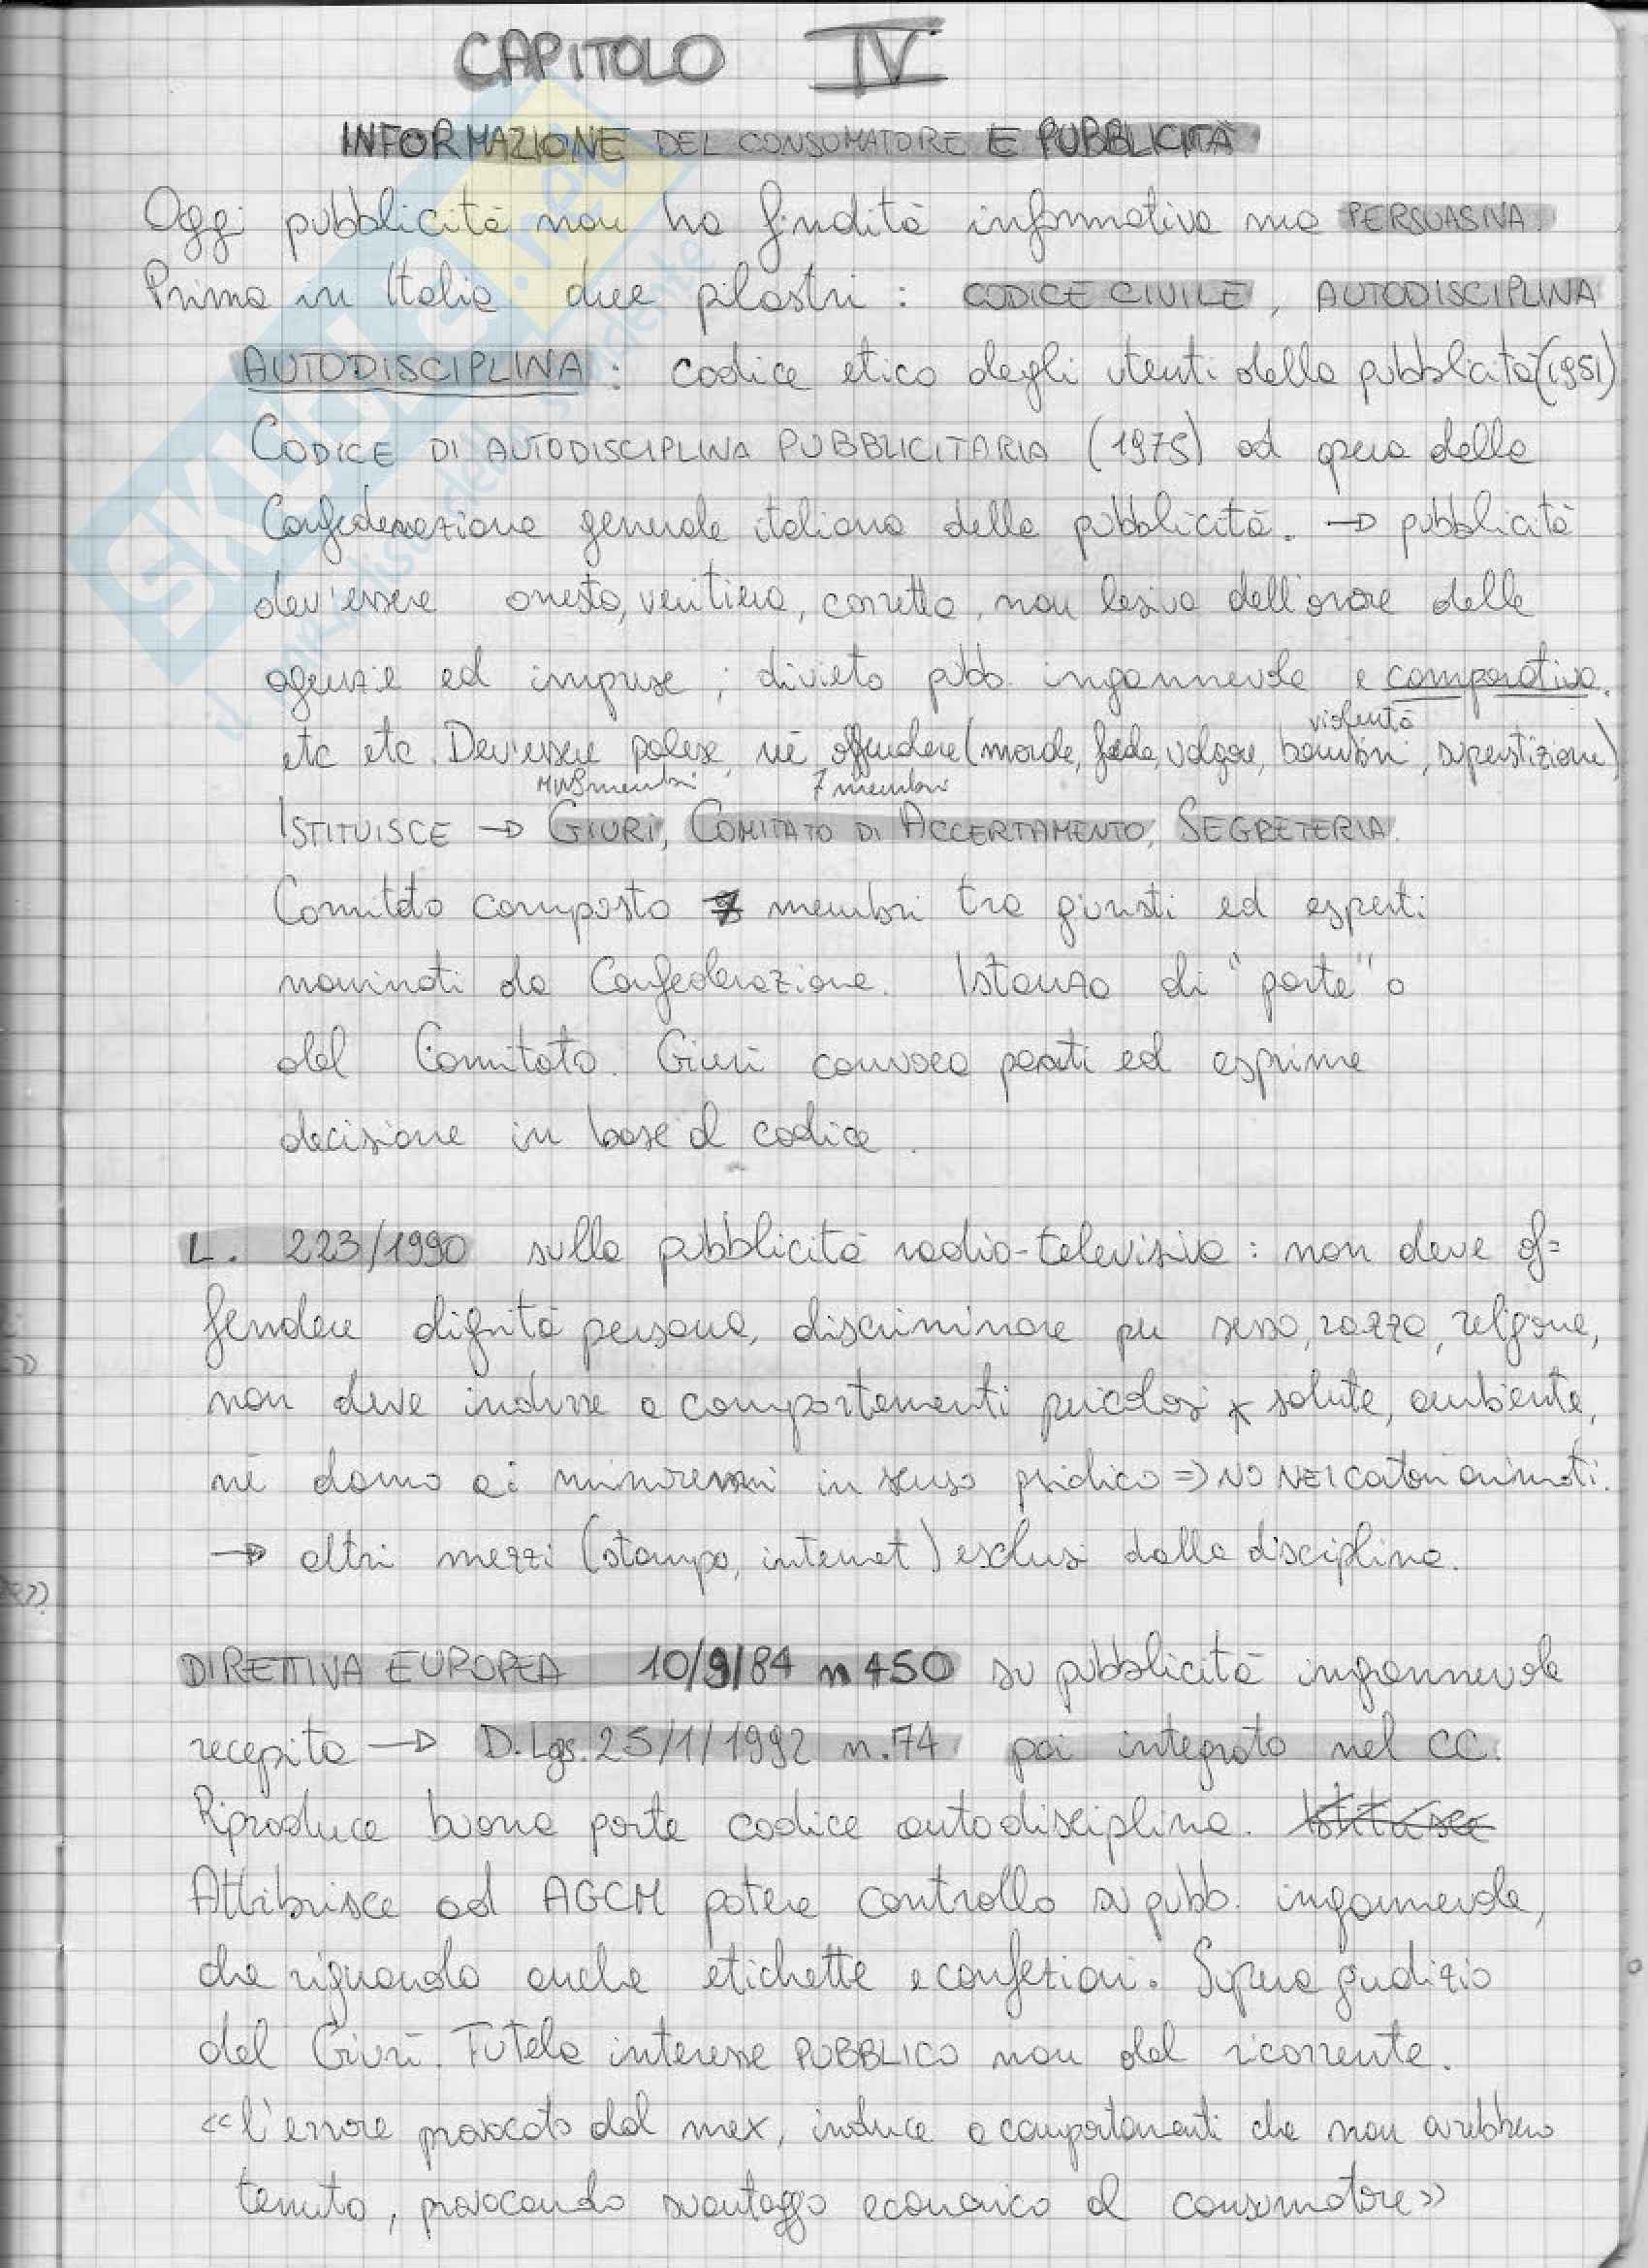 CAPITOLO IV
INFORMAZIONE DEL CONSUMATORE E PUBBLICITÀ
Oggi pubblicità non ha finalità informativa ma PERSUASIVA.
Prima in Italia due pilastri : CODICE CIVILE, AUTODISCIPLINA
AUTODISCIPLINA : codice etico degli utenti della pubblicità (1951)
CODICE DI AUTODISCIPLINA PUBBLICITARIA (1975) ad opera della
Confederazione generale italiana della pubblicità. → pubblicità
dev'essere onesta, veritiera, corretta, non lesiva dell'onore delle
agenzie ed imprese ; divieto pubb. ingannevole e comparativa.
violenta
etc etc. Dev'essere palese, né offendere (morale, fede, volgare, bambini, superstizione)
membri 7 membri
ISTITUISCE → GIURÌ, COMITATO DI ACCERTAMENTO, SEGRETERIA.
Comitato composto 7 membri tra giuristi ed esperti
nominati da Confederazione. Istanza di "parte" o
del Comitato. Giurì convoca parti ed esprime
decisione in base al codice.
L. 223/1990 sulla pubblicità radio-televisiva : non deve of=
fendere dignità persona, discriminare per sesso, razza, religione,
non deve indurre a comportamenti pericolosi x salute, ambiente,
né danno ai minorenni in senso psichico ⇒ NO NEI cartoni animati.
→ altri mezzi (stampa, internet) esclusi dalla disciplina.
DIRETTIVA EUROPEA 10/9/84 n 450 su pubblicità ingannevole
recepita → D.Lgs. 25/1/1992 n.74 poi integrato nel CC.
Riproduce buona parte codice autodisciplina. Istituisce
Attribuisce ad AGCM potere controllo su pubb. ingannevole,
che riguarda anche etichette e confezioni. Supera giudizio
del Giurì. Tutela interesse PUBBLICO non del ricorrente.
«l'errore provocato dal mex, induce a comportamenti che non avrebbero
tenuto, provocando svantaggio economico al consumatore»
SKUOLA.net
il paradiso dello studente